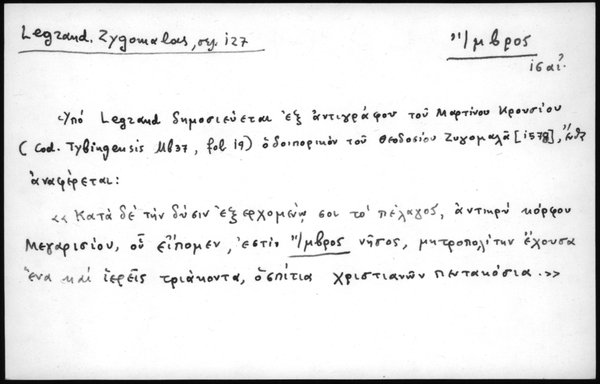 Legrand. Zygomalas, ση. 127
Ἴμβρος
ις αἰ.
Ὑπό Legrand δημοσιεύεται ἐξ ἀντιγράφου τοῦ Μαρτίνου Κρουσίου
(Cod. Tybingensis Mb37, fol 19) ὁδοιπορικόν τοῦ Θεοδοσίου Ζυγομαλᾶ [1578],
ἀναφέρεται:
«Κατά δέ τήν δύσιν ἐξερχομένῳ σοι τό πέλαγος, ἀντικρύ κόρφου
Μεγαρισίου, οὗ εἴπομεν, ἐστίν Ἴμβρος νῆσος, μητροπολίτην ἔχουσα
ἕνα καί ἱερεῖς τριάκοντα, ὁσπίτια χριστιανῶν πεντακόσια.»